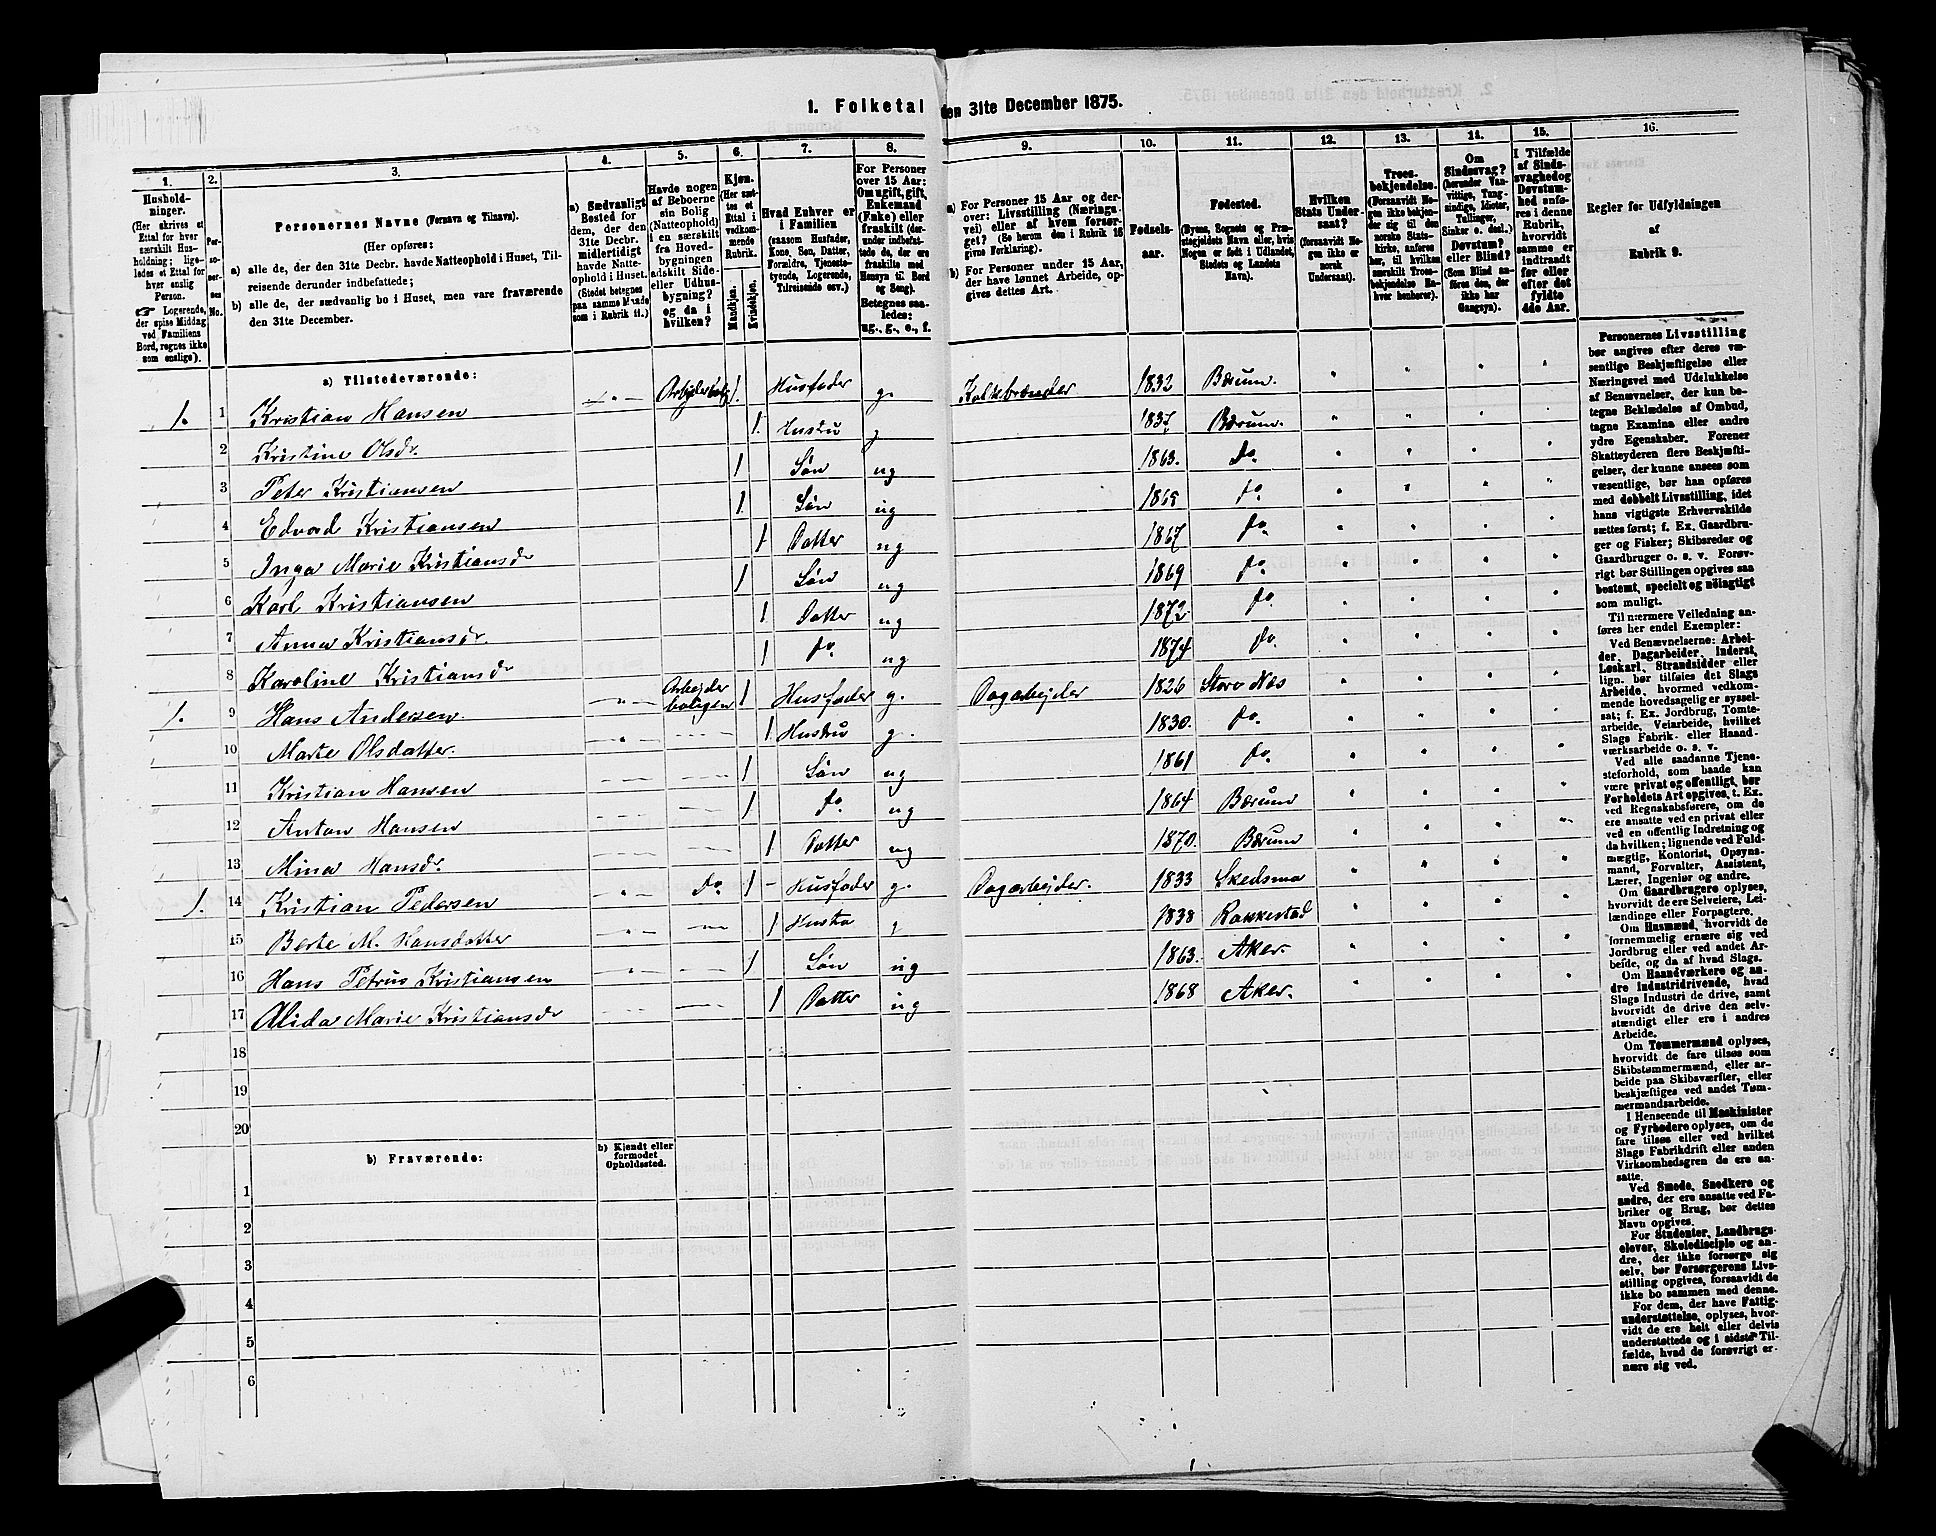 1. Folketal den 31te December 1875.
1.
Hushold-
ninger.
(Her skrives et
Ettal for hver
særskilt Hus-
holdning; lige-
ledes et Ettal for
hver enslig
Person.
Logerende,
der spise Middag
ved Familiens
Bord, regnes ikke
som enslige).
2.
Per-
so-
ner-
nes
No.
3.
Personernes Navne (Fornavn og Tilnavn).
(Her opføres:
a) alle de, der den 31te Decbr. havde Natteophold i Huset, Til-
reisende derunder indbefattede;
b) alle de, der sædvanlig bo i Huset, men vare fraværende
den 31te December.
4.
a) Sædvanligt
Bosted for
dem, der den
31te Decbr.
midlertidigt
havde Natte-
ophold i Huset.
(Stedet betegnes
paa samme Maade
som i Rubrik 11.)
5.
Havde nogen
af Beboerne
sin Bolig
(Natteophold)
i en særskilt
fra Hoved-
bygningen
adskilt Side-
eller Udhus-
bygning?
og da i
hvilken?
6.
Kjøn.
(Her sæt-
tes et
Ettal i
vedkom-
mende
Rubrik.
Mandkjøn.
Kvindekjøn.
7.
Hvad Enhver er
i Familien
(saasom Husfader,
Kone, Søn, Datter,
Forældre, Tjeneste-
tyende, Logerende,
Tilreisende osv.)
8.
For Personer
over 15 Aar:
Om ugift, gift,
Enkemand
(Enke) eller
fraskilt (der-
under indbefat-
tede de, der
ere fraskilte med
Hensyn til Bord
og Seng).
Betegnes saa-
ledes:
ug., g., e., f.
9.
a) For Personer 15 Aar og der-
over: Livsstilling (Nærings-
vei) eller af hvem forsør-
get? (Se herom den i Rubrik 16
givne Forklaring).
b) For Personer under 15 Aar,
der have lønnet Arbeide, op-
gives dettes Art.
10.
Fødsels-
aar.
11.
Fødested.
(Byens, Sognets og Præ-
stegjeldets Navn eller, hvis
Nogen er født i Udlandet,
Stedets og Landets
Navn).
12.
Hvilken
Stats Under-
saat?
(forsaavidt No-
gen ikke er
norsk
Undersaat).
13.
Troes-
bekjendelse.
(Forsaavidt No-
gen ikke bekjen-
der sig til den
norske Stats-
kirke, anføres
her, til hvilken
særskilt Troes-
bekjendelse En-
hver henhører).
14.
Om
Sindssvag?
(herunder Van-
vittige, Tung-
sindige, Idioter,
Tullinger,
Sinker o. desl.)
Døvstum?
eller Blind?
(Som Blind an-
føres den, der
ikke har
Gangsyn).
15.
I Tilfælde
af Sinds-
svaghed og
Døvstum-
hed anfø-
res i denne
Rubrik,
hvorvidt
samme er
indtraadt
før eller
efter det
fyldte
4de Aar.
16.
Regler for Udfyldningen
af
Rubrik 9.
a) Tilstedeværende:
1. 1 Kristian Hansen Arbejderbolig 1. Husfader g. Kalkbrænder 1832 Bærum.
2 Kristine Olsdr. 1. Hustru g 1837 Bærum.
3 Peter Kristiansen 1 Søn ug 1863. do.
4 Edvard Kristiansen 1 Søn ug 1865 do.
5 Inga Marie Kristiansdr 1 Datter ug 1867 do.
6 Karl Kristiansen 1 Søn ug 1869 do.
7 Anna Kristiansdr. 1 Datter ug 1872 do.
8 Karoline Kristiansdr 1 do. ug 1874 do.
1. 9 Hans Andersen. Arbejder boligen 1 Husfader g. Dagarbejder 1826 Store Næs
10 Marte Olsdatter. 1 Hustru g. 1830. do.
11 Kristian Hansen 1 Søn ug 1861 do.
12 Anton Hansen 1 do. ug 1864 Bærum
13 Mina Hansdr. 1 Datter ug 1870. Bærum
1. 14 Kristian Pedersen do. 1 Husfader g. Dagarbejder. 1833 Skedsmo
15 Berte M. Hansdatter 1 Hustru g 1838 Rakkestad
16 Hans Petrus Kristiansen 1 Søn ug 1863. Aker.
17 Alida Marie Kristiansdr 1 Datter ug 1868 Aker.
18
19
20
b) Fraværende:
b) Kjendt eller
formodet
Opholdssted.
1
2
3
4
5
6
Personernes Livsstilling
bør angives efter deres væ-
sentlige Beskjæftigelse eller
Næringsvei med Udelukkelse
af Benævnelser, der kun be-
tegne Beklædelse af Ombud,
tagne Examina eller andre
ydre Egenskaber. Forener
Skatteyderen flere Beskjæfti-
gelser, der kunne ansees som
væsentlige, bør han opføres
med dobbelt Livsstilling, idet
hans vigtigste Erhvervskilde
sættes først; f. Ex. Gaardbru-
ger og Fisker; Skibsreder og
Gaardbruger o. s. v. Forøv-
rigt bør Stillingen opgives saa
bestemt, specielt og nøiagtigt
som muligt.
Til nærmere Veiledning an-
føres her endel Exempler:
Ved Benævnelserne: Arbei-
der, Dagarbeider, Inderst,
Løskarl, Strandsidder eller
lign. bør tilføies det Slags
Arbeide, hvormed vedkom-
mende hovedsagelig er syssel-
sat; f. Ex. Jordbrug, Tomte-
arbeide, Veiarbeide, hvilket
Slags Fabrik- eller Haand-
værksarbeide o. s. v.
Ved alle saadanne Tjene-
steforhold, som baade kan
være privat og offentligt, bør
Forholdets Art opgives, t. Ex.
ved Regnskabsførere, om de
ere ansatte ved en privat eller
ved en offentlig Indretning og
da hvilken; lignende ved Fuld-
mægtig, Kontorist, Opsyns-
mand, Forvalter, Assistent,
Lærer, Ingeniør og andre.
Om Gaardbrugere oplyses,
hvorvidt de ere Selveiere, Lei-
lændinge eller Forpagtere.
Om Husmænd, hvorvidt de
fornemmelig ernære sig ved
Jordbrug eller ved andet Ar-
beide, og da af hvad Slags.
Om Haandværkere og an-
dre Industridrivende, hvad
Slags Industri de drive, samt
hvorvidt de drive den selv-
stændigt eller ere i andres
Arbeide.
Om Tømmermænd oplyses,
hvorvidt de fare tilsøs som
Skibstømmermænd, eller ar-
beide paa Skibsværfter, eller
beskjæftiges ved andet Tøm-
mermandsarbeide.
I Henseende til Maskinister
og Fyrbødere oplyses, om de
fare tilsøs eller ved hvilket
Slags Fabrikdrift eller anden
Virksomhedsgren de ere an-
satte.
Ved Smede, Snedkere og
andre, der ere ansatte ved Fa-
briker og Brug, bør dettes
Navn opgives.
For Studenter, Landbrugs-
elever, Skoledisciple og an-
dre, der ikke forsørge sig
selv, bør Forsørgerens Livs-
stilling opgives, forsaavidt de
ikke bo sammen med denne.
For dem, der have Fattig-
understøttelse, oplyses, hvor-
vidt de ere helt eller delvis
understøttede og i sidste Til-
fælde, hvad de forøvrigt er-
nære sig ved.